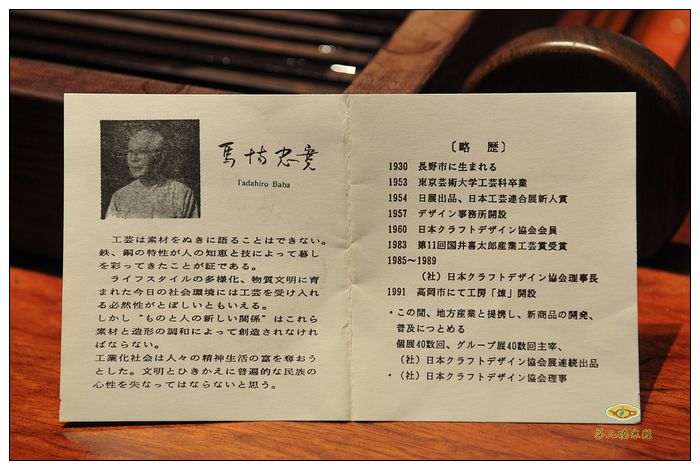 馬場忠寛
Tadahiro Baba
工芸は素材をぬきに語ることはできない。
鉄、銅の特性が人の知恵と技によって暮し
を彩ってきたことが証である。
ライフスタイルの多様化、物質文明に育
まれた今日の社会環境には工芸を受け入れ
る必然性がとぼしいともいえる。
しかし“ものと人の新しい関係”はこれら
素材と造形の調和によって創造されなけれ
ばならない。
工業化社会は人々の精神生活の富を奪おう
とした。文明とひきかえに普遍的な民族の
心性を失なってはならないと思う。
〔略 歴〕
1930 長野市に生まれる
1953 東京芸術大学工芸科卒業
1954 日展出品、日本工芸連合展新人賞
1957 デザイン事務所開設
1960 日本クラフトデザイン協会会員
1983 第11回国井喜太郎産業工芸賞受賞
1985~1989
（社）日本クラフトデザイン協会理事長
1991 高岡市にて工房「煉」開設
・この間、地方産業と提携し、新商品の開発、
普及につとめる
個展40数回、グループ展40数回主宰、
（社）日本クラフトデザイン協会展連続出品
・（社）日本クラフトデザイン協会理事